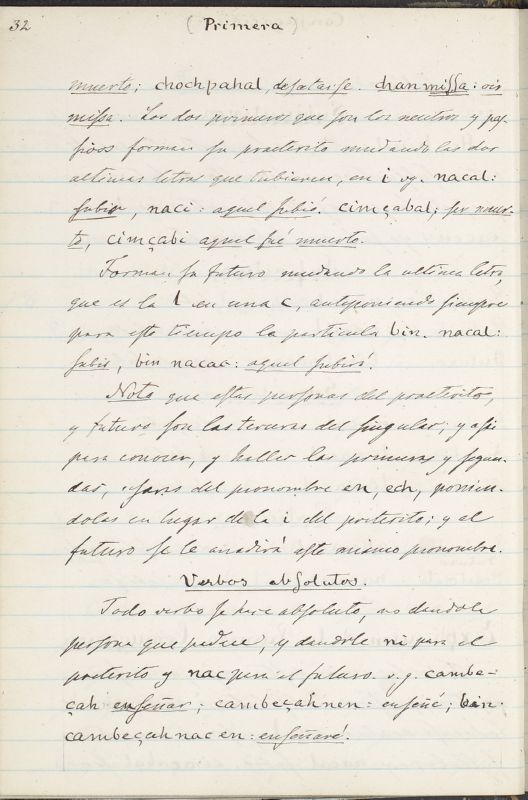 32
(Primera)
muerto; chochpahal, desatarse. chanmissa: oir
missa. Los dos primeros que son los neutros y pas-
sivos forman su praeterito mudando las dos
ultimas letras que tubieren, en i vg. nacal:
subir, naci: aquel subió. cimçabal; ser muer-
to, cimçabi aquel fué muerto.
Forman su futuro mudando la ultima letra,
que es la l en una c, anteponiendo siempre
para este tiempo la particula bin. nacal:
subir, bin nacac: aquel subirá.
Nota que estas personas del praeterito,
y futuro son las terceras del singular; y assi
para conocer, y hallar las primeras y segun-
das, usaras del pronombre en, ech, ponien-
dolas en lugar de la i del preterito; y al
futuro se le anadirá este mismo pronombre.
Verbos absolutos.
Todo verbo se hace absoluto, no dandole
persona que padece, y dandole ni para el
preterito y nac para el futuro. v.g. cambe-
çah enseñar; cambeçahnen: enseñé; bin
cambeçahnacen: enseñaré.